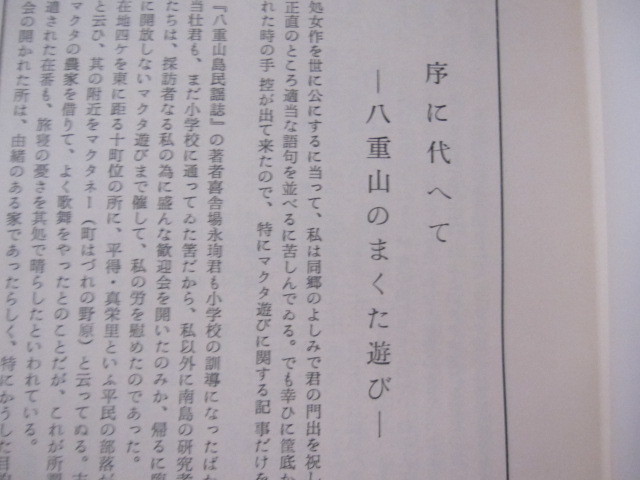 序に代へて
―八重山のまくた遊び―
処女作を世に公にするに当って、私は同郷のよしみで君の門出を祝し
正直のところ適当な語句を並べるに苦しんでゐる。でも幸ひに筐底か
れた時の手控が出て来たので、特にマクタ遊びに関する記事だけを
『八重山島民謡誌』の著者喜舎場永珣君も小学校の訓導になったばか
当壮君も、まだ小学校に通ってゐた筈だから、私以外に南島の研究者
たちは、採訪者なる私の為に盛んな歓迎会を開いたのみか、帰るに臨
に開放しないマクタ遊びまで催して、私の労を慰めたのであった。
在地四ケを東に距る十町位の所に、平得・真栄里といふ平民の部落が
と云ひ、其の附近をマクタネー(町はづれの野原)と云ってゐる。古
マクタの農家を借りて、よく歌舞をやったとのことだが、これが所謂
遣された在番も、旅寝の憂さを其処で晴らしたといわれている。
会の開かれた所は、由緒のある家であったらしく、特にかうした目的